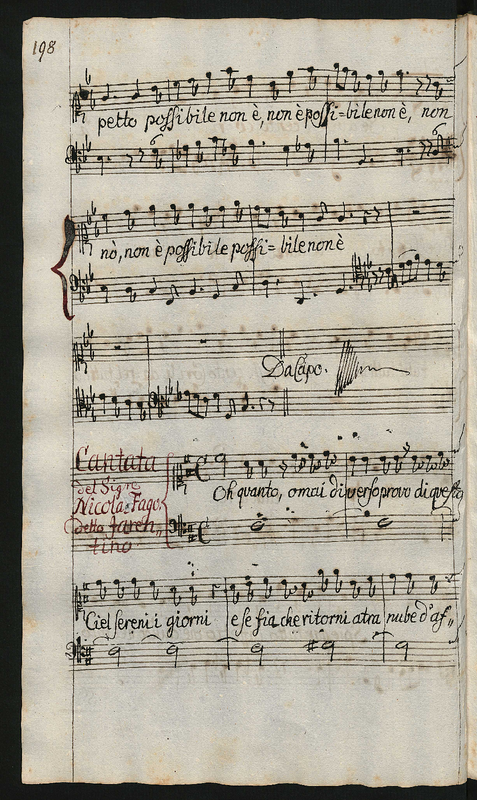 198
petto possibile non è, non è possi=bile non è, non
nò, non è possibile possi=bile non è
Da Capo.
Cantata
del Sigre
Nicola Fago
detto Taren,,
tino
Oh quanto, o mai diverso provo di questo
Ciel sereni i giorni e se fia che ritorni atra nube d'af,,